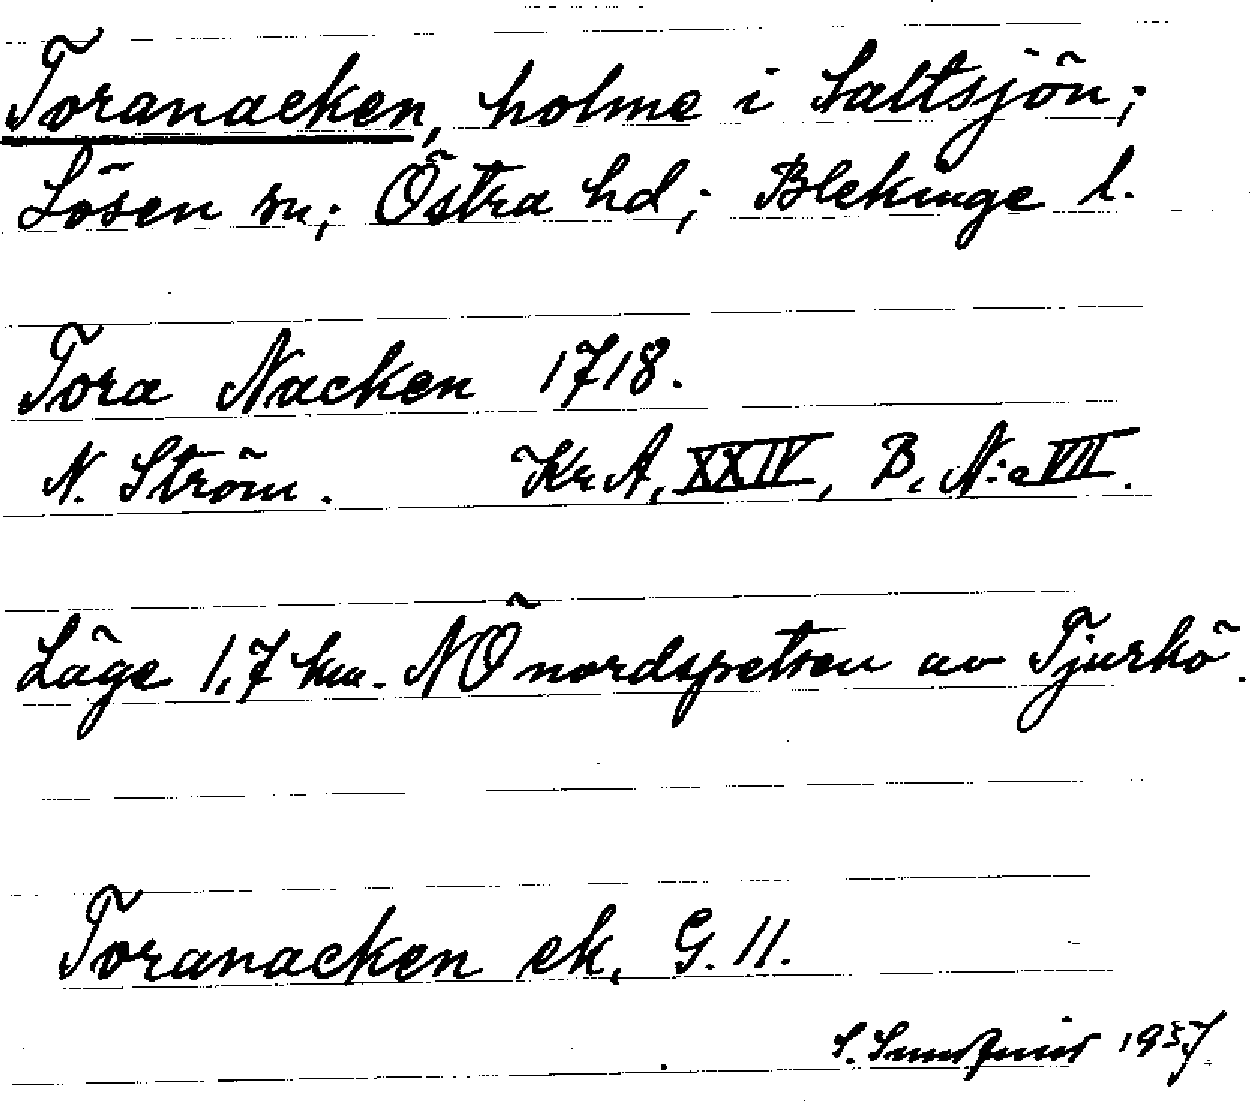 Toranacken, holme i Saltsjön;
Lösen sn; Östra hd; Blekinge l.
Tora Nacken 1718.
N. Ström. Kr. A, XXIV, B. N:o VII.
Läge 1,7 km. NÖ nordspetsen av Tjurkö.
Toranacken ek. G. 11.
S. 1937